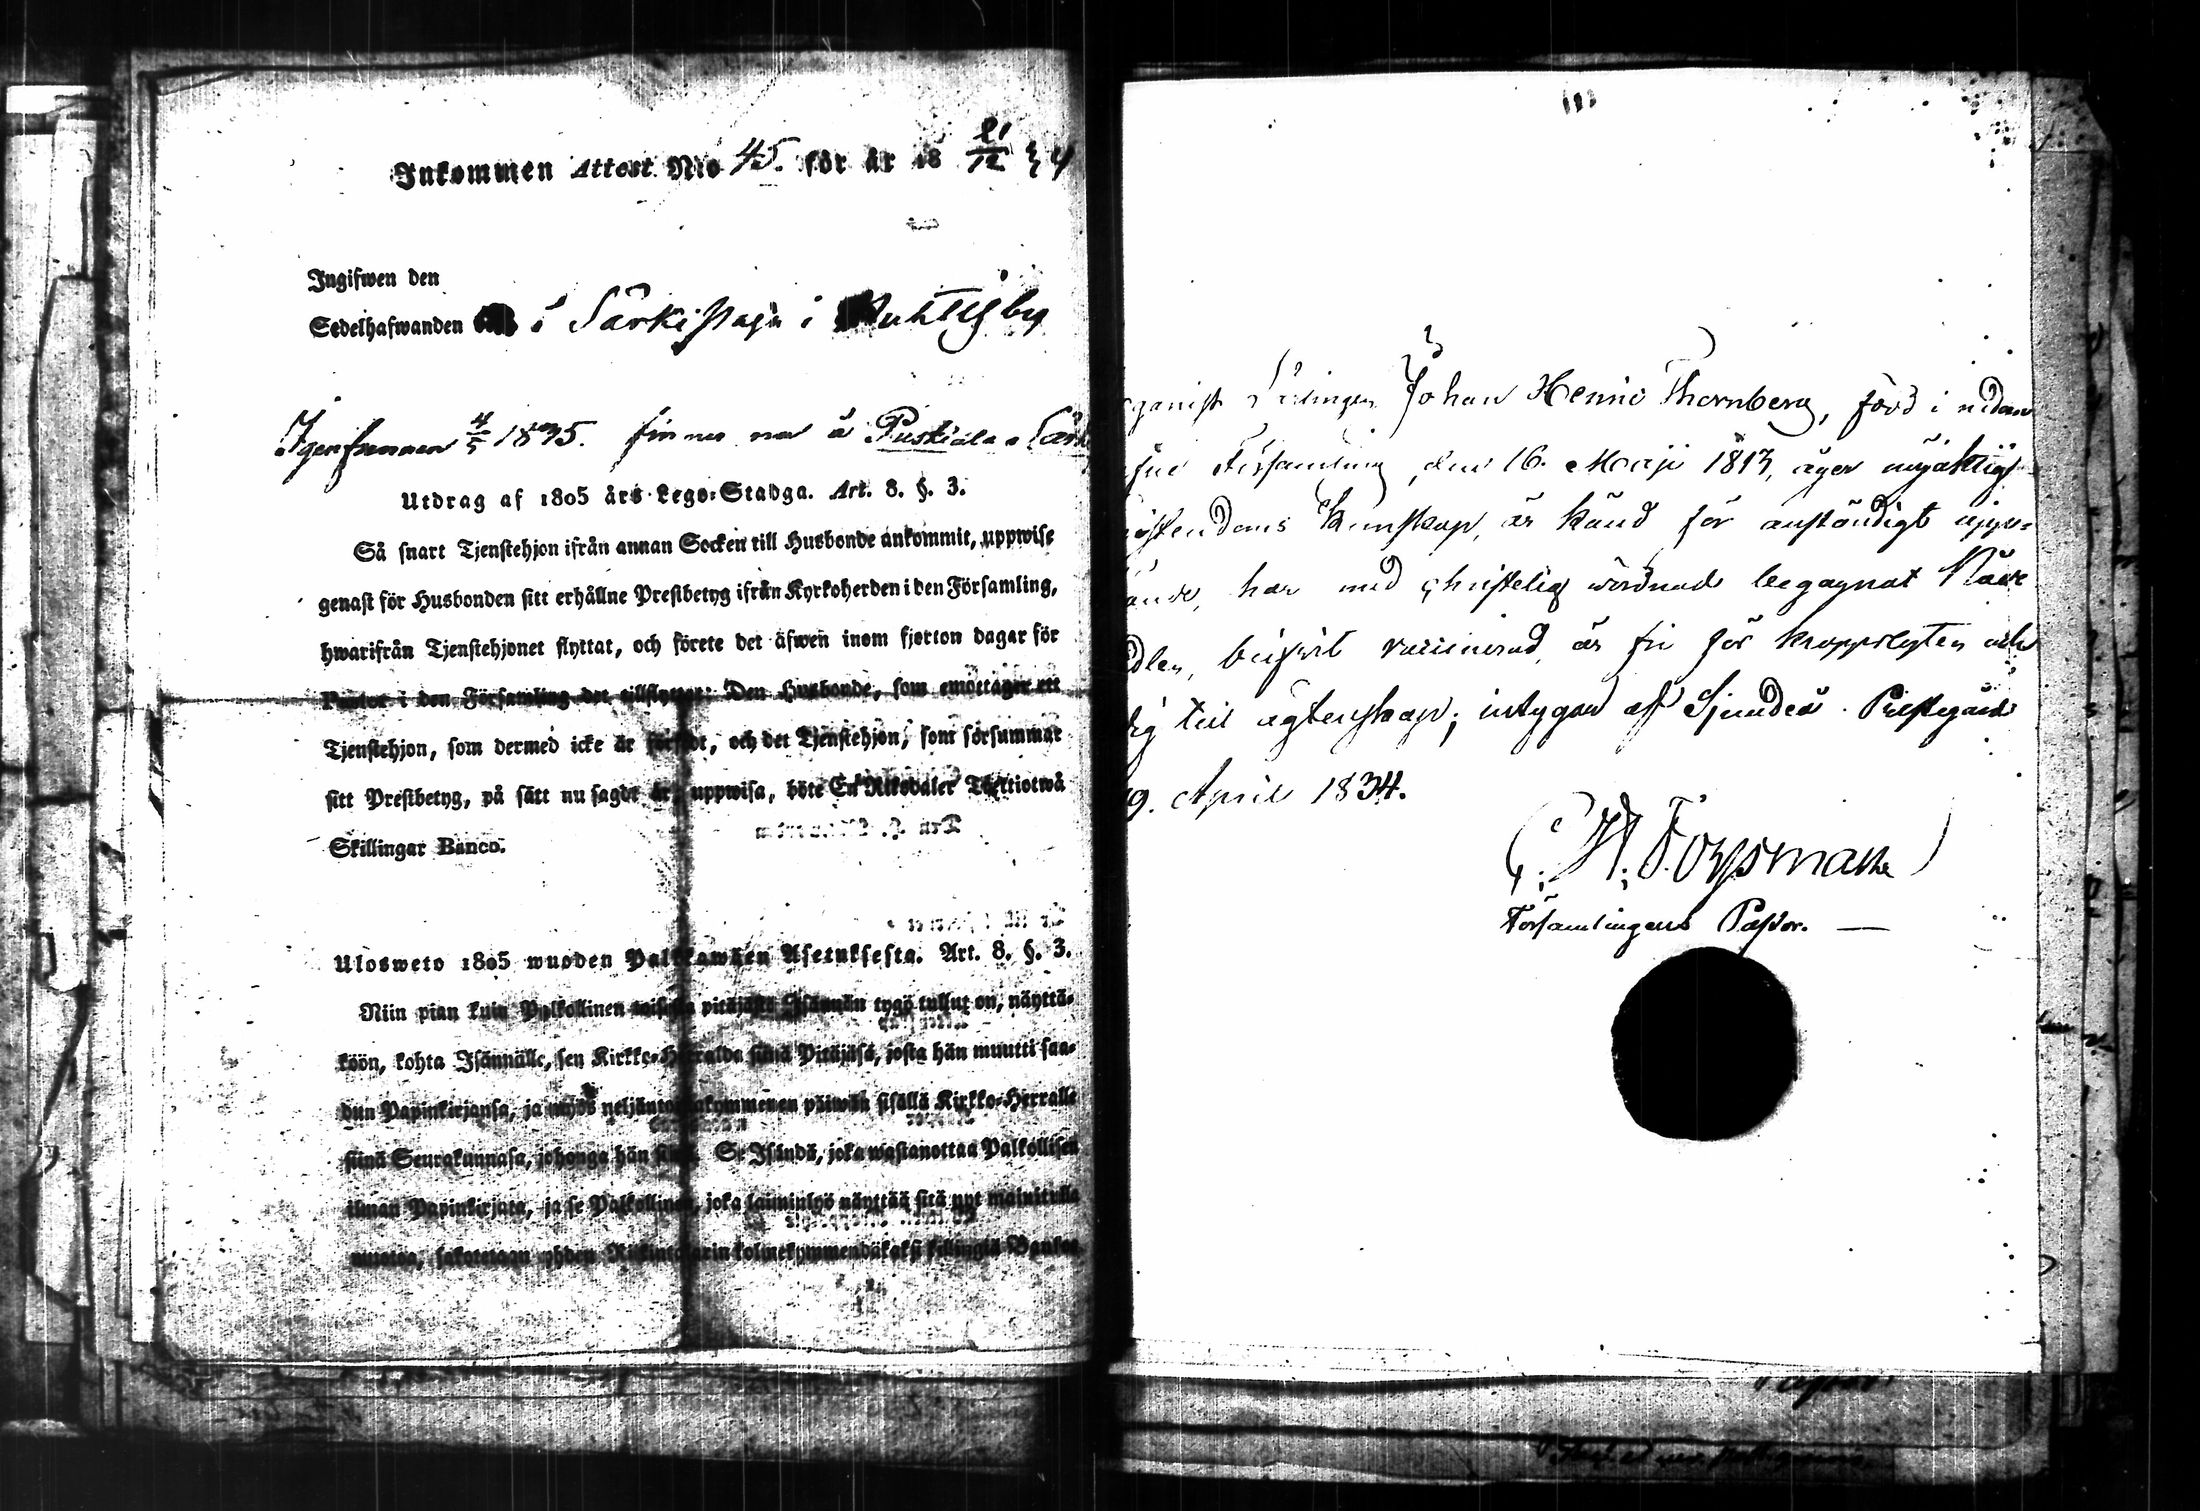 Inkommen Attest N:o 45. för år 18 21/12 34
Ingifwen den
Sedelhafwanden i Särkistaju i
Igenfunnen 4/5 1835. finnes nu å Puskiala
Utdrag af 1805 års Lego-Stadga. Art. 8. §. 3.
Så snart Tjenstehjon ifrån annan Socken till Husbonde ankommit, uppwise
genast för Husbonden sitt erhållne Prestbetyg ifrån Kyrkoherden i den Församling,
hwarifrån Tjenstehjonet flyttat, och förete det äfwen inom fjorton dagar för
Pastor i den Församling det tillflyttat: Den Husbonde, som emottager ett
Tjenstehjon, som dermed icke är försedt, och det Tjenstehjon, som försummar
sitt Prestbetyg, på sätt nu sagdt är, uppwisa, böte En Riksdaler Trettiotwå
Skillingar Banco.
Ulosweto 1805 wuoden Palkkawäen Asetuksesta. Art. 8. §. 3.
Niin pian kuin Palkollinen toisesta pitäjästä Isännän tygö tullut on, näyttä-
köön, kohta Isännälle, sen Kirkko-Herralda siinä Pitäjäsä, josta hän muutti saa-
dun Papinkirjansa, ja myös neljäntoistakymmenen päiwän sisällä Kirkko-Herralle
siinä Seurakunnasa, johonga hän Se Isändä, joka wastanottaa Palkollisen
ilman Papinkirjata, ja se Palkollinen, joka laiminlyö näyttää sitä nyt mainitulla
muotoa, sakotetaan yhden Riikintalarin kolmekymmendäkaksi killingiä Bankos
Johan Henric Thornberg, född i nedan
Församling, den 16. Maji 1813, äger nöjaktigt
Kunskap, är känd för anständigt uppe-
har med christelig wördnad begagnat Natt
bewisl. vaccinerad, är fri för kroppslyten och
till ägtenskap; intygar af Sjundeå Prestegård
9. April 1834.
C. H. Forsman
Församlingens Pastor.